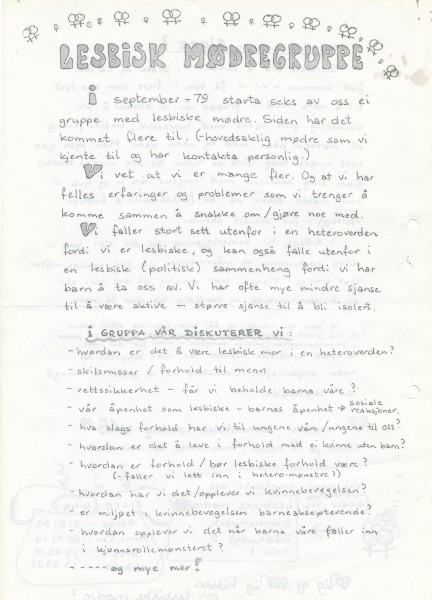 LESBISK MØDREGRUPPE
i september -79 starta seks av oss ei
gruppe med lesbiske mødre. Siden har det
kommet flere til. (-hovedsaklig mødre som vi
kjente til og har kontakta personlig.)
Vi vet at vi er mange fler. Og at vi har
felles erfaringer og problemer som vi trenger å
komme sammen å snakke om/gjøre noe med.
Vi faller stort sett utenfor i en heteroverden
fordi vi er lesbiske, og kan også falle utenfor i
en lesbisk (politisk) sammenheng fordi vi har
barn å ta oss av. Vi har ofte mye mindre sjanse
til å være aktive - større sjanse til å bli isolert.
i GRUPPA VÅR DISKUTERER VI:
- hvordan er det å være lesbisk mor i en heteroverden?
- skilsmisser / forhold til menn
- rettssikkerhet - får vi beholde barna våre?
- vår åpenhet som lesbiske - barnas åpenhet → sosiale reaksjoner.
- hva slags forhold har vi til ungene våre/ungene til oss?
- hvordan er det å leve i forhold med ei kvinne uten barn?
- hvordan er forhold / bør lesbiske forhold være?
(- faller vi lett inn i hetero-mønstre?)
- hvordan har vi det/opplever vi kvinnebevegelsen?
- er miljøet i kvinnebevegelsen barneaksepterende?
- hvordan opplever vi det når barna våre faller inn
i kjønnsrollemønsteret?
- - - - - - og mye mer!